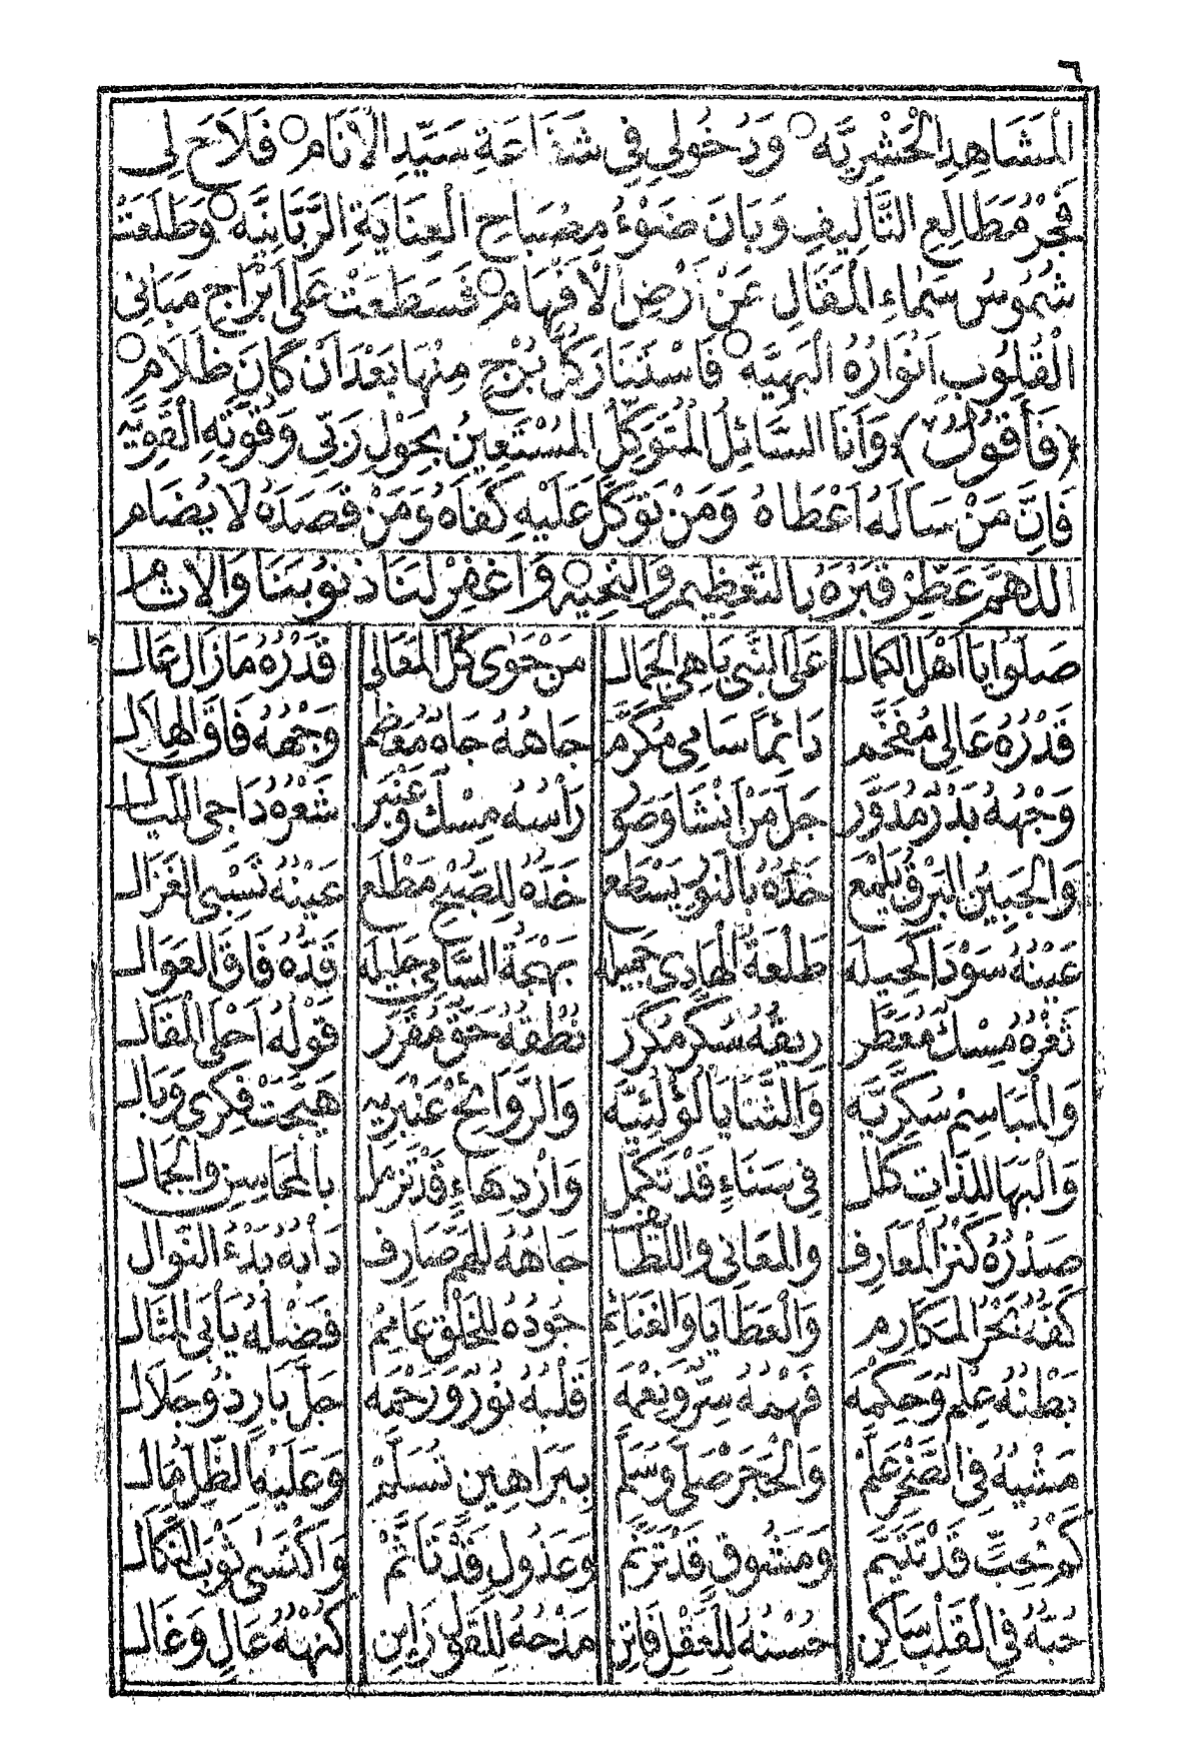 ٦
الْمَشَاهِدِ الْحَشْرِيَّه ○ وَدُخُولِي فِي شَفَاعَةِ سَيِّدِ الْاَنَام ○ فَلَاحَ لِي
فَجْرُ مَطَالِعِ التَّأْلِيفِ وَبَانَ ضَوْءُ مِصْبَاحِ الْعِنَايَةِ الرَّبَّانِيَّه ○ وَطَلَعَتْ
شُمُوسُ سَمَاءِ الْمَقَالِ عَنْ اَرْضِ الْاَفْهَام ○ فَسَطَعَتْ عَلَى اَبْرَاجِ مَبَانِي
الْقُلُوبِ اَنْوَارُهُ الْبَهِيَّه ○ فَاسْتَنَارَ كُلُّ بُرْجٍ مِنْهَا بَعْدَ اَنْ كَانَ ظَلَام ○
﴿فَاَقُولُ﴾ وَاَنَا السَّائِلُ الْمُتَوَكِّلُ الْمُسْتَعِينُ بِحَوْلِ رَبِّي وَقُوَّتِهِ الْقَوِيَّه
فَاِنَّ مَنْ سَاَلَهُ اَعْطَاهُ وَمَنْ تَوَكَّلَ عَلَيْهِ كَفَاهُ وَمَنْ قَصَدَهُ لَا يُضَام
اللهم عَطِّرْ قَبْرَهُ بِالتَّعْظِيمِ وَالتَّحِيَّه ○ وَاغْفِرْ لَنَا ذُنُوبَنَا وَالْاٰثَام
صَلُّوا يَا اَهْلَ الْكَمَال عَلَى النَّبِي بَاهِي الْجَمَال مَنْ حَوَى كُلَّ الْمَعَالِي قَدْرُهُ مَا زَالَ عَال
قَدْرُهُ عَالِي مُفَخَّم دَائِمًا سَامِي مُكَرَّم جَاهُهُ جَاهٌ مُعَظَّم وَجْهُهُ فَاقَ الْهِلَال
وَجْهُهُ بَدْرٌ مُدَوَّر جَلَّ مَنْ اَنْشَا وَصَوَّر رَأْسُهُ مِسْكٌ وَعَنْبَر شَعْرُهُ دَاجِي اللَّيَال
وَالْجَبِينُ الْبَرْقُ يَلْمَع خَدُّهُ بِالنُّورِ يَسْطَع خَدُّهُ لِلصُّبْحِ مَطْلَع عَيْنُهُ تَسْبِي الْغَزَال
عَيْنُهُ سَوْدَا كَحِيلَه طَلْعَةُ الْهَادِي جَمِيلَه بَهْجَةُ السَّامِي جَلِيلَه قَدُّهُ فَاقَ الْعَوَال
ثَغْرُهُ مِسْكٌ مُعَطَّر رِيقُهُ سُكَّر مُكَرَّر نُطْقُهُ حَقٌّ مُقَرَّر قَوْلُهُ اَحْلَى الْمَقَال
وَالْمَبَاسِمْ سُكَّرِيَّه وَالثَّنَايَا لُؤْلُئِيَّه وَالرَّوَائِحْ عَنْبَرِيَه هَيَّجَتْ فِكْرِي وَبَال
وَالْبَهَا لِلذَّاتِ كَلَّل فِي سَنَاءٍ قَدْ تَكَمَّل وَازْدِهَاءٍ قَدْ تَزَمَّل بِالْمَحَاسِنِ وَالْجَمَال
صَدْرُهُ كَنْزُ الْمَعَارِف وَالْمَعَانِي وَاللَّطَائِف جَاهُهُ لِلْهَمِّ صَارِف دَأْبُهُ بَدْءُ النَّوَال
كَفُّهُ بَحْرُ الْمَكَارِم وَالْعَطَايَا وَالْغَنَائِم جُودُهُ لِلْخَلْقِ عَامِيمُ فَضْلُهُ يَأْبَى الْمِثَال
بَطْنُهُ عِلْمٌ وَحِكْمَه فَهْمُهُ سِرٌّ وَنِعْمَه قَلْبُهُ نُورٌ وَرَحْمَه جَلَّ بَارٍ ذُو جَلَال
مَشْيُهُ فِي الصَّخْرِ عَلَّمْ وَالْحَجَرْ صَلَّى وَسَلَّم بِبَرَاهِينٍ تُسَلَّمْ وَعَلَيْهِ الظِّلُّ مَال
كَمْ مُحِبٍّ قَدْ تَتَيَّم وَمَشُوقٍ قَدْ تَرَنَّم وَعَذُولٍ قَدْ تَاَثَّمْ وَاكْتَسَى ثَوْبَ النَّكَال
حُبُّهُ فِي الْقَلْبِ سَاكِن حُسْنُهُ لِلْعَقْلِ فَاتِن مَدْحُهُ لِلْقَوْلِ زَاين كُنْهُهُ عَالٍ وَغَال